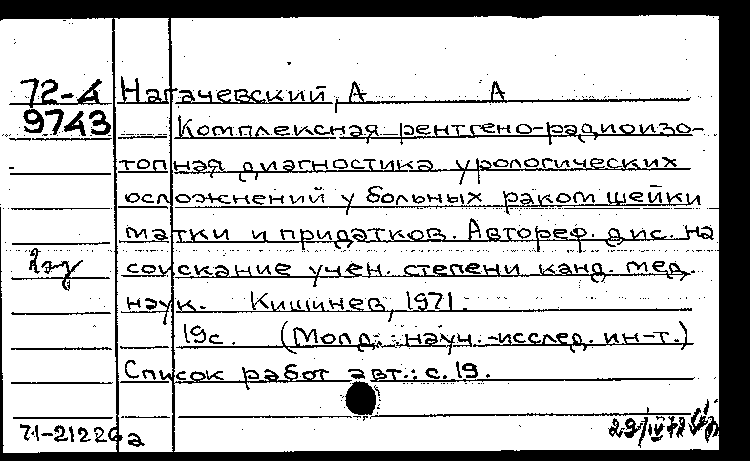 72-4 Нагачевский, А А
9743 Комплексная рентгено-радиоизо-
топная диагностика урологических
осложнений у больных раком шейки
матки и придатков. Автореф. дис. на
соискание учен. степени канд. мед.
наук. Кишинев, 1971.
19с. (Молд. науч.-исслед. ин-т.)
Список работ авт.: с. 19.
71-21226а 29/IV 72